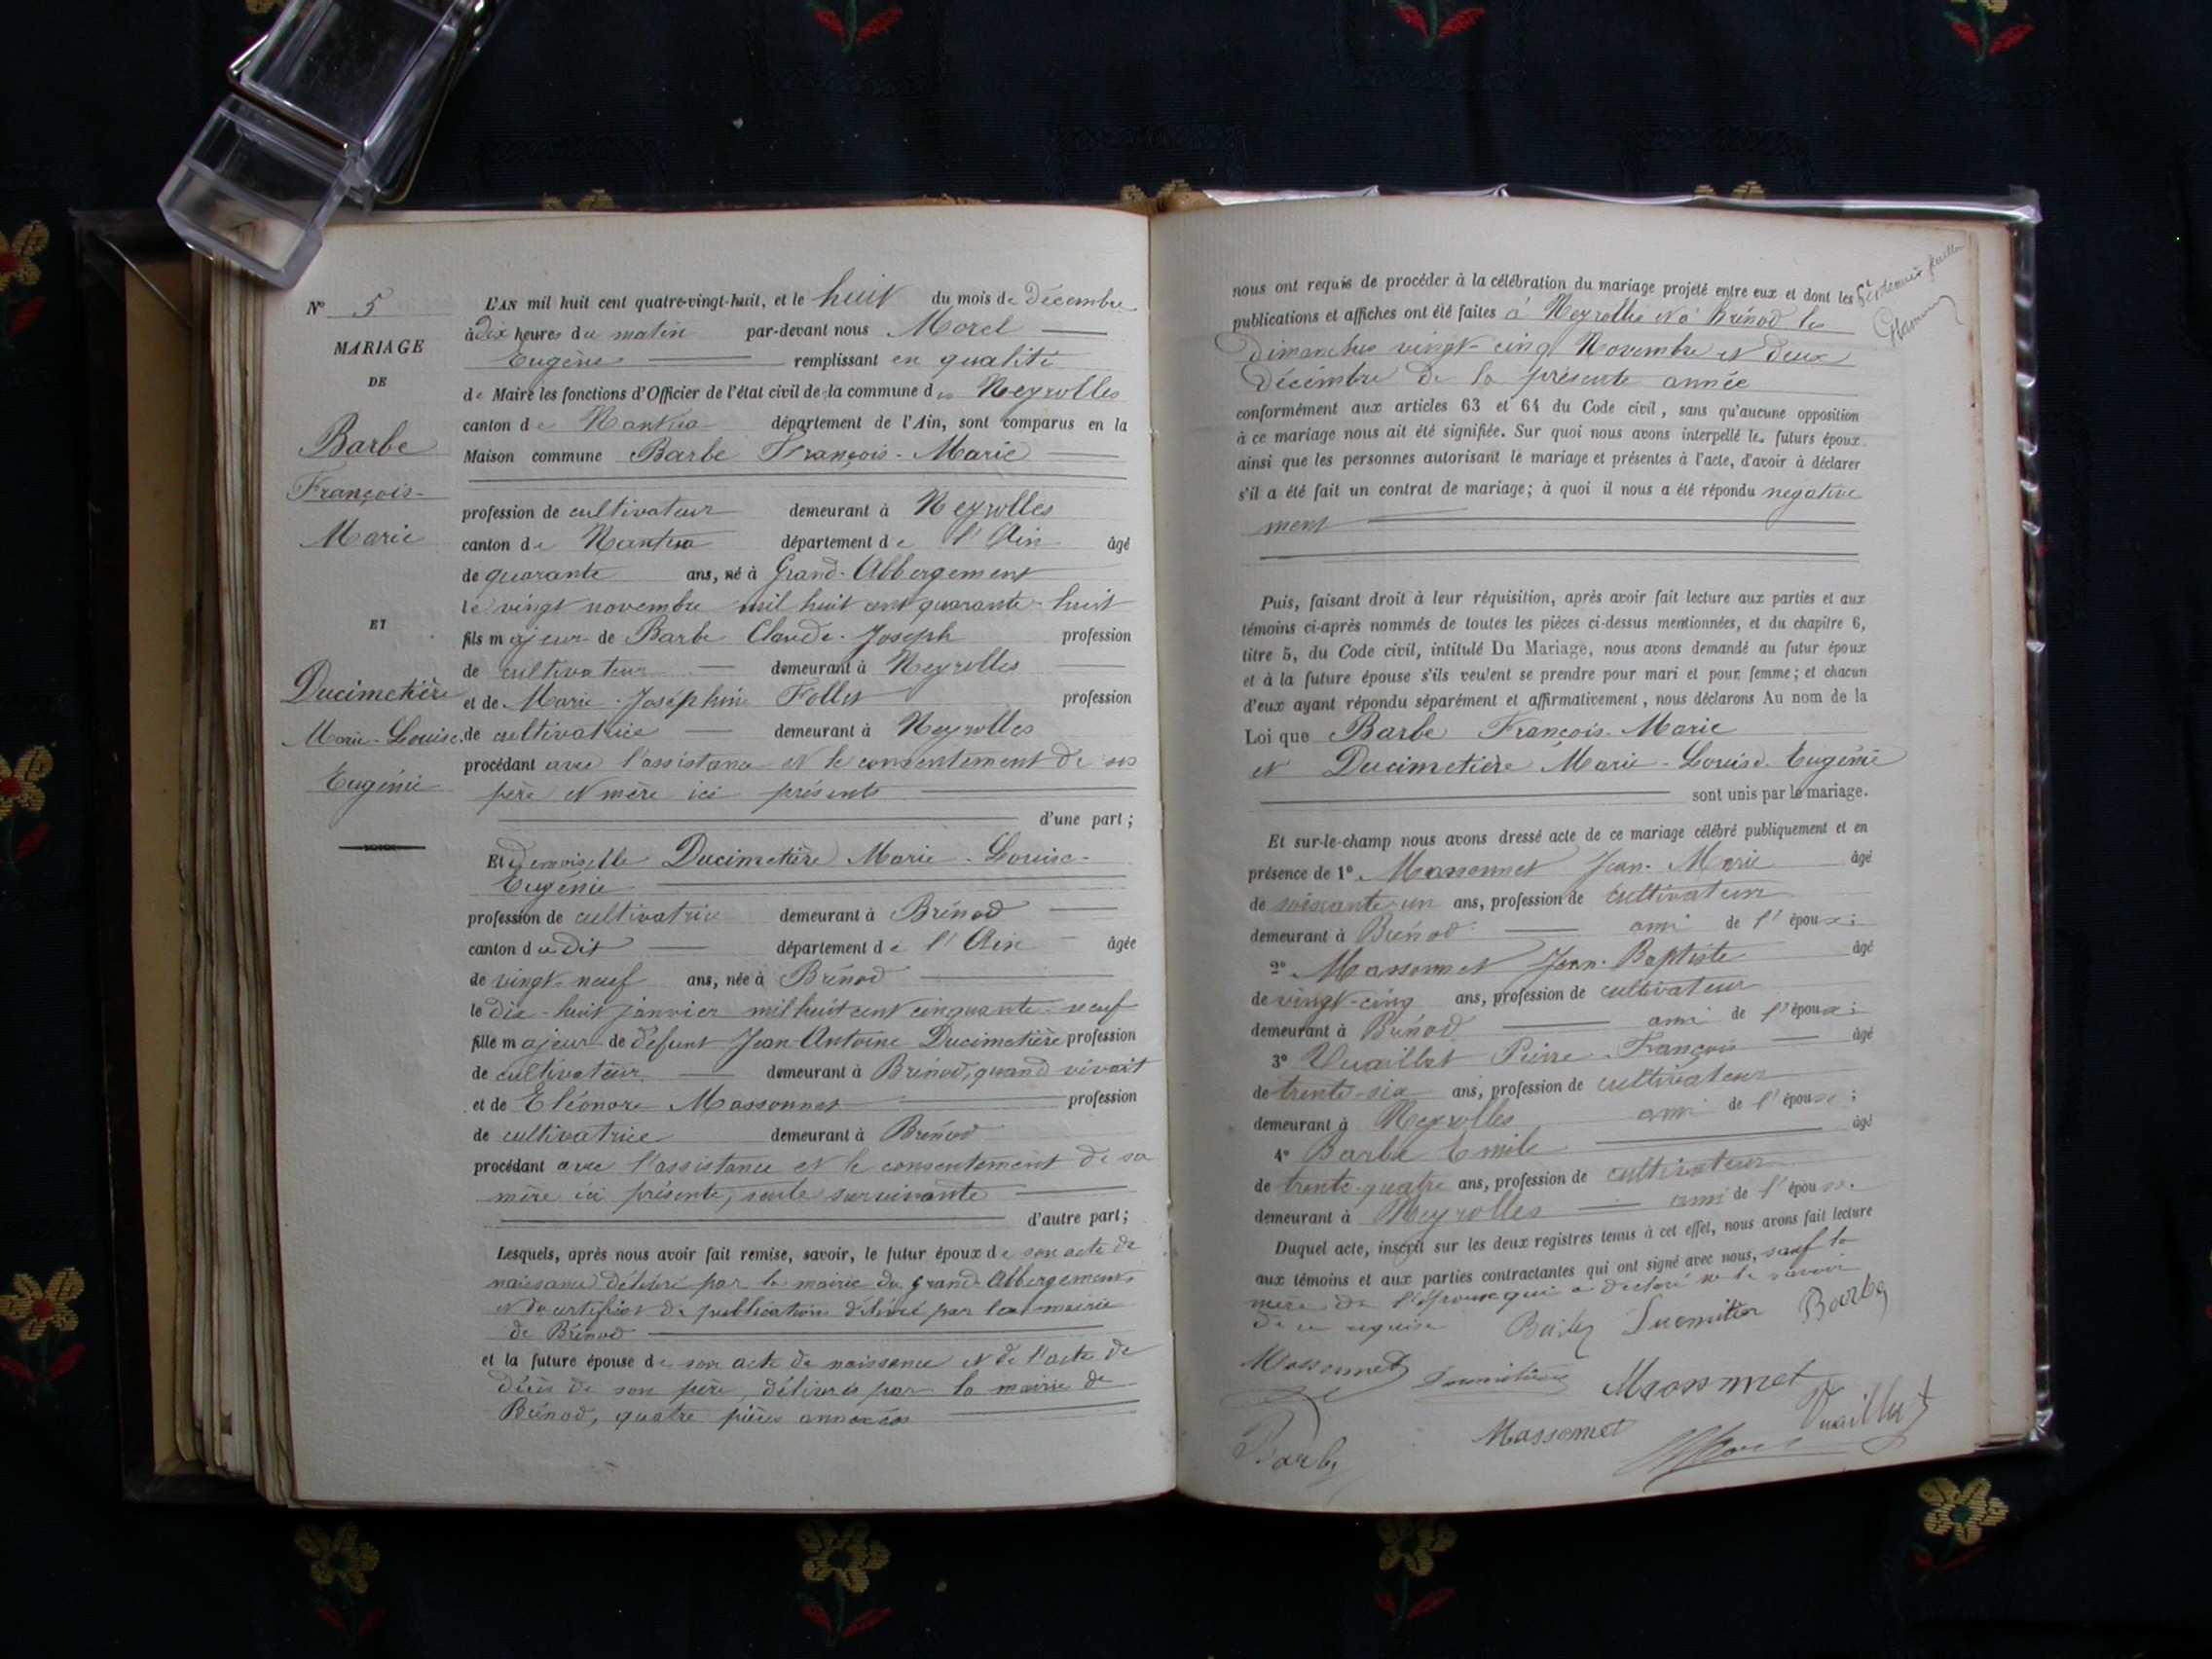 N° 5
MARIAGE
DE
Barbe
François-
Marie
ET
Ducimetière
Marie-Louise-
Eugénie
L'AN mil huit cent quatre-vingt-huit, et le huit du mois de Décembre
à dix heures du matin par-devant nous Morel
Eugène remplissant en qualité
de Maire les fonctions d'Officier de l'état civil de la commune des Neyrolles
canton de Nantua département de l'Ain, sont comparus en la
Maison commune Barbe François-Marie
profession de cultivateur demeurant à Neyrolles
canton de Nantua département de l'Ain âgé
de quarante ans, né à Grand-Abbergement
le vingt novembre mil huit cent quarante-huit
fils majeur de Barbe Claude-Joseph profession
de cultivateur demeurant à Neyrolles
et de Marie-Joséphine Follet profession
de cultivatrice demeurant à Neyrolles
procédant avec l'assistance et le consentement de ses
père et mère ici présents
d'une part ;
Et demoiselle Ducimetière Marie-Louise-
Eugénie
profession de cultivatrice demeurant à Brénod
canton dudit département de l'Ain âgée
de vingt-neuf ans, née à Brénod
le dix-huit janvier mil huit cent cinquante-neuf
fille majeur de défunt Jean-Antoine Ducimetière profession
de cultivateur demeurant à Brénod, quand vivait
et de Eléonore Massonnet profession
de cultivatrice demeurant à Brénod
procédant avec l'assistance et le consentement de sa
mère ici présente, seule survivante
d'autre part ;
Lesquels, après nous avoir fait remise, savoir, le futur époux de son acte de
naissance délivré par la mairie du Grand-Abbergement
et du certificat de publication délivré par la mairie
de Brénod
et la future épouse de son acte de naissance et de l'acte de
décès de son père, délivrés par la mairie de
Brénod, quatre pièces annexées
nous ont requis de procéder à la célébration du mariage projeté entre eux et dont les
publications et affiches ont été faites à Neyrolles et à Brénod les
Dimanches vingt-cinq Novembre et deux
Décembre de la présente année
conformément aux articles 63 et 64 du Code civil, sans qu'aucune opposition
à ce mariage nous ait été signifiée. Sur quoi nous avons interpellé les futurs époux
ainsi que les personnes autorisant le mariage et présentes à l'acte, d'avoir à déclarer
s'il a été fait un contrat de mariage; à quoi il nous a été répondu négative
ment
Puis, faisant droit à leur réquisition, après avoir fait lecture aux parties et aux
témoins ci-après nommés de toutes les pièces ci-dessus mentionnées, et du chapitre 6,
titre 5, du Code civil, intitulé Du Mariage, nous avons demandé au futur époux
et à la future épouse s'ils veulent se prendre pour mari et pour femme; et chacun
d'eux ayant répondu séparément et affirmativement, nous déclarons Au nom de la
Loi que Barbe François-Marie
et Ducimetière Marie-Louise-Eugénie
sont unis par le mariage.
Et sur-le-champ nous avons dressé acte de ce mariage célébré publiquement et en
présence de 1° Massonnet Jean-Marie âgé
de soixante-un ans, profession de cultivateur
demeurant à Brénod ami de l'époux ;
2° Massonnet Jean-Baptiste âgé
de vingt-cinq ans, profession de cultivateur
demeurant à Brénod ami de l'époux ;
3° Vuaillat Pierre-François âgé
de trente-six ans, profession de cultivateur
demeurant à Neyrolles ami de l'épouse ;
4° Barbe Emile âgé
de trente-quatre ans, profession de cultivateur
demeurant à Neyrolles ami de l'épouse.
Duquel acte, inscrit sur les deux registres tenus à cet effet, nous avons fait lecture
aux témoins et aux parties contractantes qui ont signé avec nous, sauf la
mère de l'épouse qui a déclaré ne le savoir
de ce requise Ducimetière Barbe
Massonnet Ducimetière Massonnet
Barbe Massonnet Morel Vuaillat